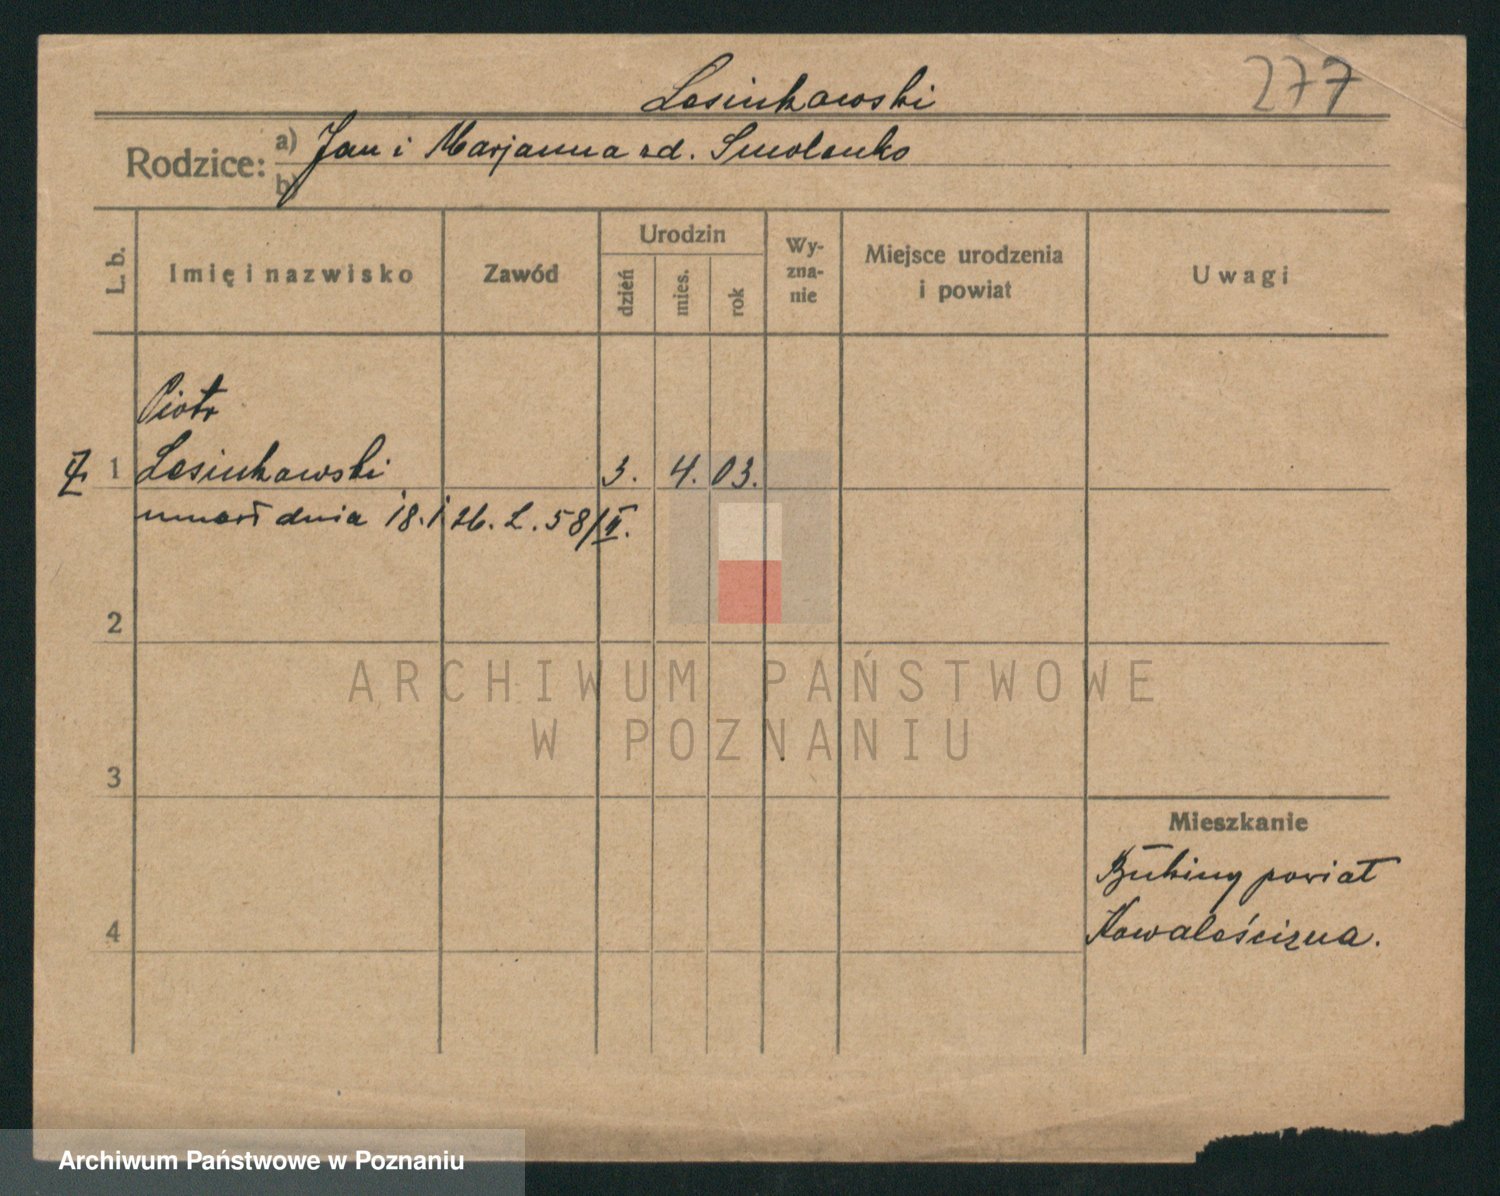 277
Lesiukowski
Rodzice: a) Jan i Marjanna zd. Smolenko
b)
L. b. Imię i nazwisko Zawód Urodzin dzień mies. rok Wy-zna-nie Miejsce urodzenia i powiat Uwagi
Piotr
1 Lesiukowski 3. 4. 03.
umarł dnia 18. 1 26. L. 58/II.
2
ARCHIWUM PAŃSTWOWE
W POZNANIU
3
Mieszkanie
powiat
4 Kowaleścizna.
Archiwum Państwowe w Poznaniu